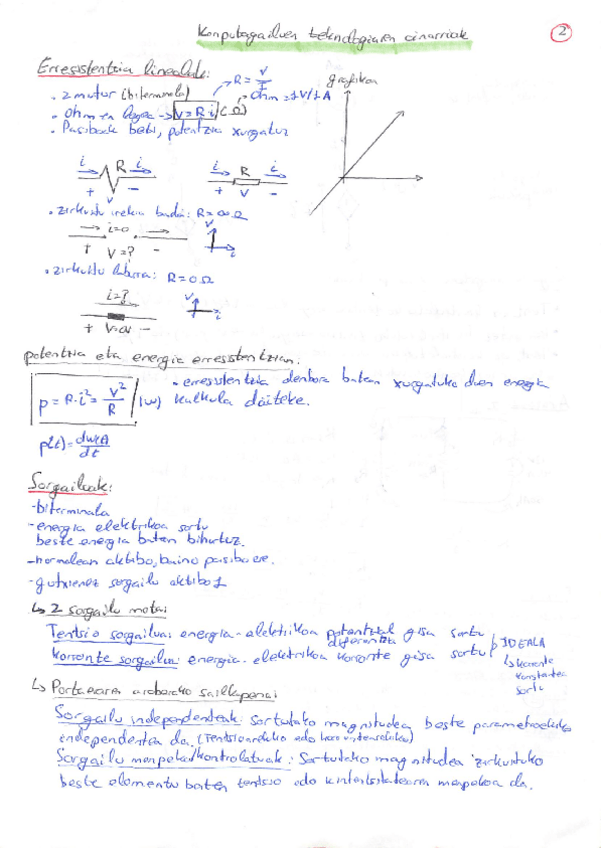 Konputagailuen teknologiaren oinarriak
2
Erresistentzia linealak:
R = V/I
grafikoa
. 2 motur (biterminala)
Ohm = 1V/1A
. Ohm-en legea → V = R·i (Ω)
. Pasiboak beti, potentzia xurgatuz
i R i
+ V -
i R i
+ V -
. zirkuitu irekia bada: R = ∞ Ω
i=0
+ V=? -
V
i
. zirkuitu laburra: R = 0 Ω
i=?
+ V=0V -
V
i
potentzia eta energia erresistentzian:
p = R·i² = V²/R (W)
. erresistentzia denbora batean xurgatuko duen energia
kalkula daiteke.
p(t) = dw(t)/dt
Sorgailuak:
-biterminala
-energia elektrikoa sortu
beste energia baten bihurtuz.
-normalean aktibo, baino pasibo ere.
-gutxienez sorgailu aktibo 1
↳ 2 sorgailu mota:
Tentsio sorgailua: energia elektrikoa potentzial diferentzia gisa sortu
korronte sorgailua: energia elektrikoa korronte gisa sortu
IDEALA
↳ korronte
konstantea
sortu
↳ Portaeraren araberako sailkapena:
Sorgailu independenteak: Sortutako magnitudea beste parametroekiko
independentea da. (Tentsioarako edo
Sorgailu menpekoak/kontrolatuak: Sortutako magnitudea zirkuituko
beste elementu baten tentsio edo intentsitatearen menpekoa da.